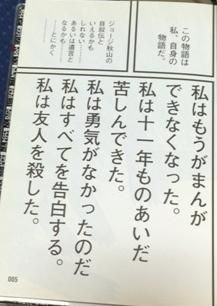 この物語は
私、自身の
物語だ。
ジョージ秋山の
自叙伝と
いえるかも
しれない
あるいは遺言と
なるかも
……とにかく
私はもうがまんが
できなくなった。
私は十一年ものあいだ
苦しんできた。
私は勇気がなかったのだ
私はすべてを告白する。
私は友人を殺した。
005